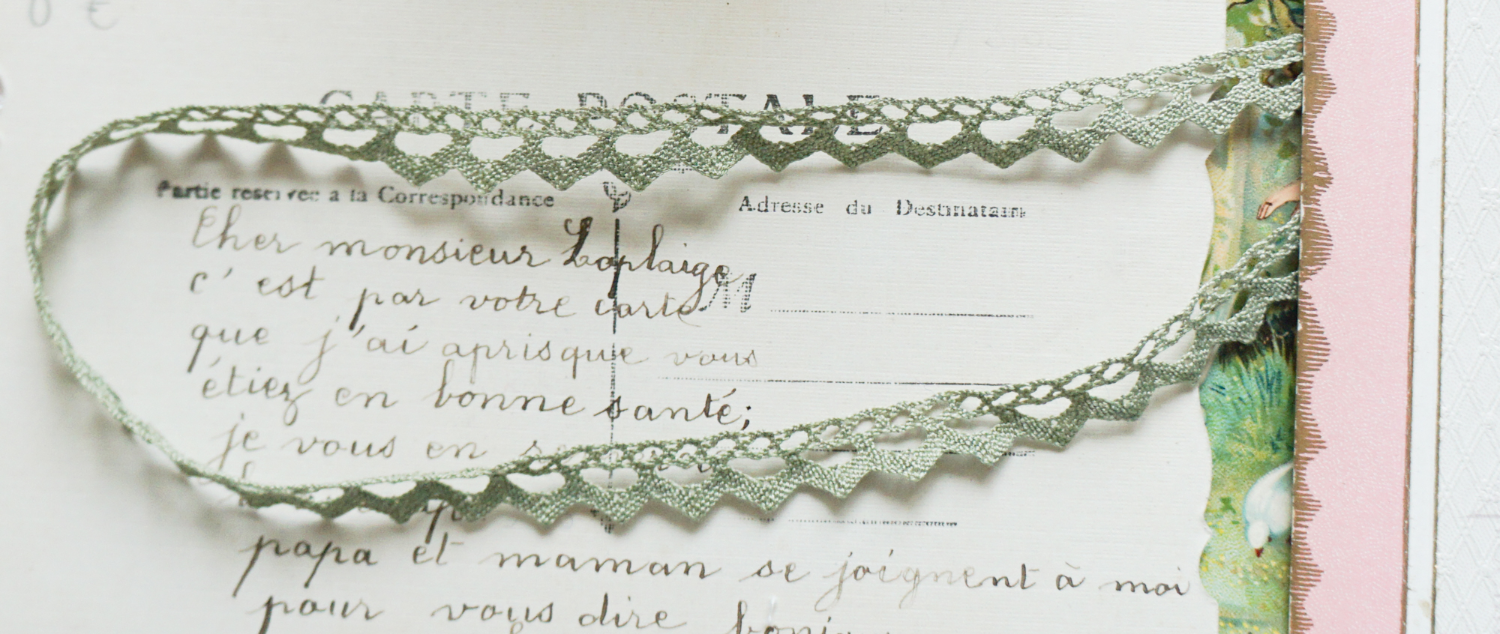 0 €
CARTE POSTALE
Partie reservee a la Correspondance
Adresse du Destinataire
Cher monsieur Laplaige
c' est par votre carte
M
que j'ai aprisque vous
étiez en bonne santé;
je vous en
papa et maman se joignent à moi
pour vous dire